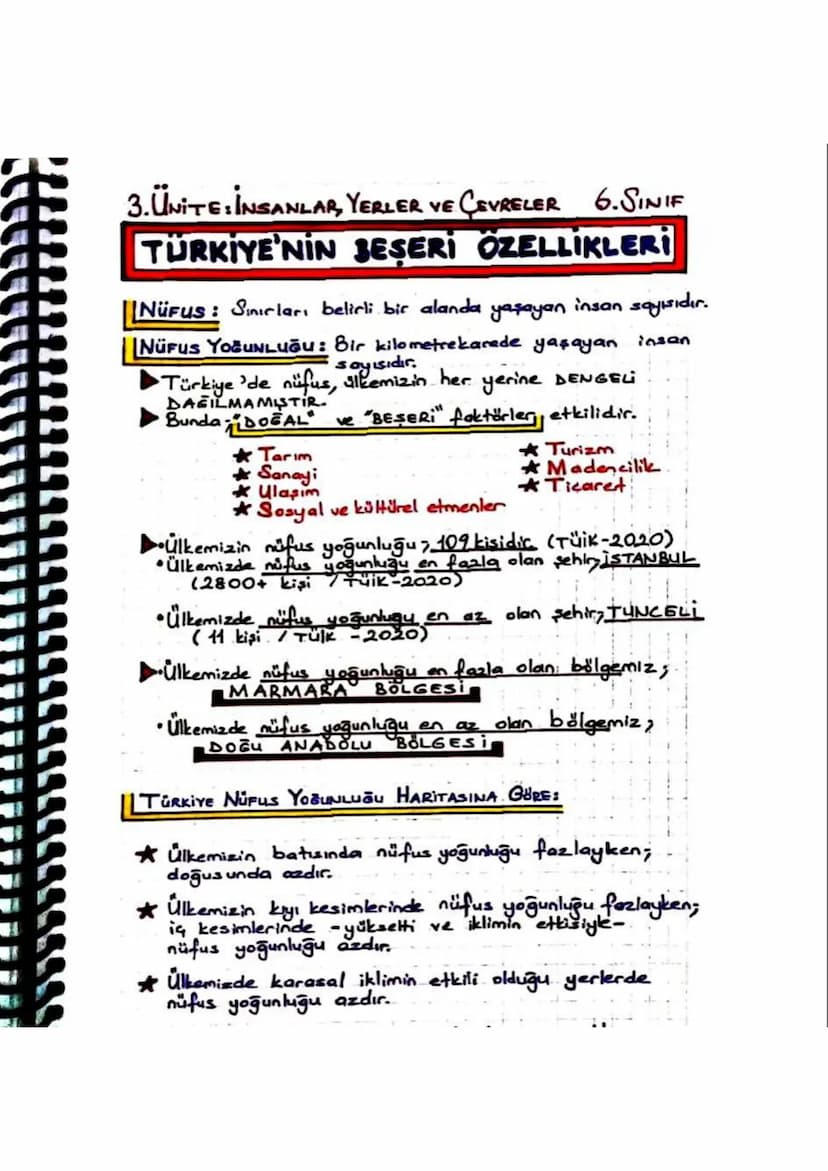 3.ÜNİTE: İNSANLAR, YERLER VE ÇEVRELER 6.SINIF
TÜRKİYE'NİN BEŞERİ ÖZELLİKLERİ
NÜFUS: Sınırları belirli bir alanda yaşayan insan sayısıdır.
NÜFUS YOĞUNLUĞU: Bir kilometrekarede yaşayan insan
sayısıdır.
Türkiye'de nüfus, ülkemizin her yerine DENGELİ
DAĞILMAMIŞTIR.
Bunda; "DOĞAL" ve "BEŞERİ" faktörler etkilidir.
★ Tarım ★ Turizm
★ Sanayi ★ Madencilik
★ Ulaşım ★ Ticaret
★ Sosyal ve kültürel etmenler
•Ülkemizin nüfus yoğunluğu; 109 kişidir. (TÜİK-2020)
•Ülkemizde nüfus yoğunluğu en fazla olan şehir; İSTANBUL
(2800+ kişi / TÜİK-2020)
•Ülkemizde nüfus yoğunluğu en az olan şehir; TUNCELİ
(11 kişi / TÜİK -2020)
•Ülkemizde nüfus yoğunluğu en fazla olan bölgemiz;
MARMARA BÖLGESİ
•Ülkemizde nüfus yoğunluğu en az olan bölgemiz;
DOĞU ANADOLU BÖLGESİ
TÜRKİYE NÜFUS YOĞUNLUĞU HARİTASINA GÖRE:
★ Ülkemizin batısında nüfus yoğunluğu fazlayken;
doğusunda azdır.
★ Ülkemizin kıyı kesimlerinde nüfus yoğunluğu fazlayken;
iç kesimlerinde -yükselti ve iklimin etkisiyle-
nüfus yoğunluğu azdır.
★ Ülkemizde karasal iklimin etkili olduğu yerlerde
nüfus yoğunluğu azdır.